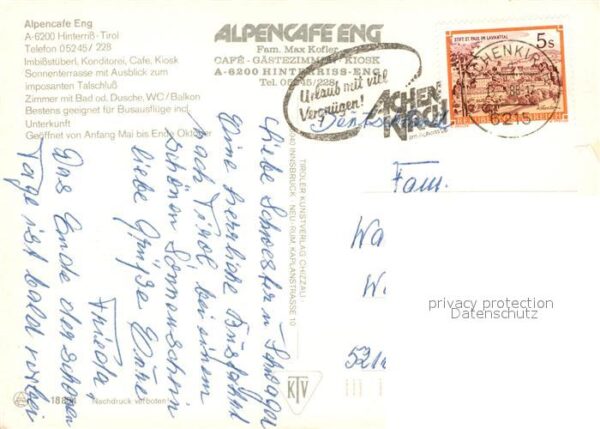 Alpencafe Eng
A-6200 Hinterriß-Tirol
Telefon 05245/228
Imbißstüberl, Konditorei, Cafe, Kiosk
Sonnenterrasse mit Ausblick zum
imposanten Talschluß
Zimmer mit Bad od. Dusche, WC/Balkon
Bestens geeignet für Busausflüge incl.
Unterkunft
Geöffnet von Anfang Mai bis Ende Oktober
ALPENCAFE ENG
Fam. Max Kofler
CAFÉ - GÄSTEZIMMER - KIOSK
A-6200 HINTERRISS-ENG
Tel. 05245/228
Urlaub mit viel
Vergnügen!
ACHEN
KIRCH
am Achensee
STIFT ST. PAUL IM LAVANTTAL
5s
6215
REPUBLIK ÖSTERREICH
Liebe Schwester u. Schwager
Eine herrliche Busfahrt
nach Tirol bei einem
schönen Sonnenschein
liebe Grüße Eure
Frieda,
Das Ende der schönen
Tage ist bald vorbei
TIROLER KUNSTVERLAG CHIZZALI
6040 INNSBRUCK - NEU-RUM, KAPLANSTRASSE 10
Deutschland
Fam.
Wa
W
521
privacy protection
Datenschutz
KTV
Nachdruck verboten